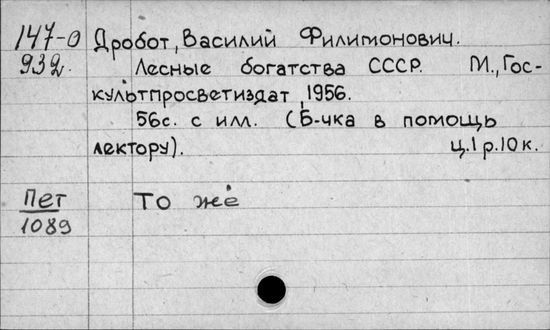 147-0 Дробот, Василий Филимонович.
932. Лесные богатства СССР. М., Гос-
культпросветиздат, 1956.
56с. с ил. (Б-чка в помощь
лектору). ц. 1 р. 10 к.
Пет То же
1089